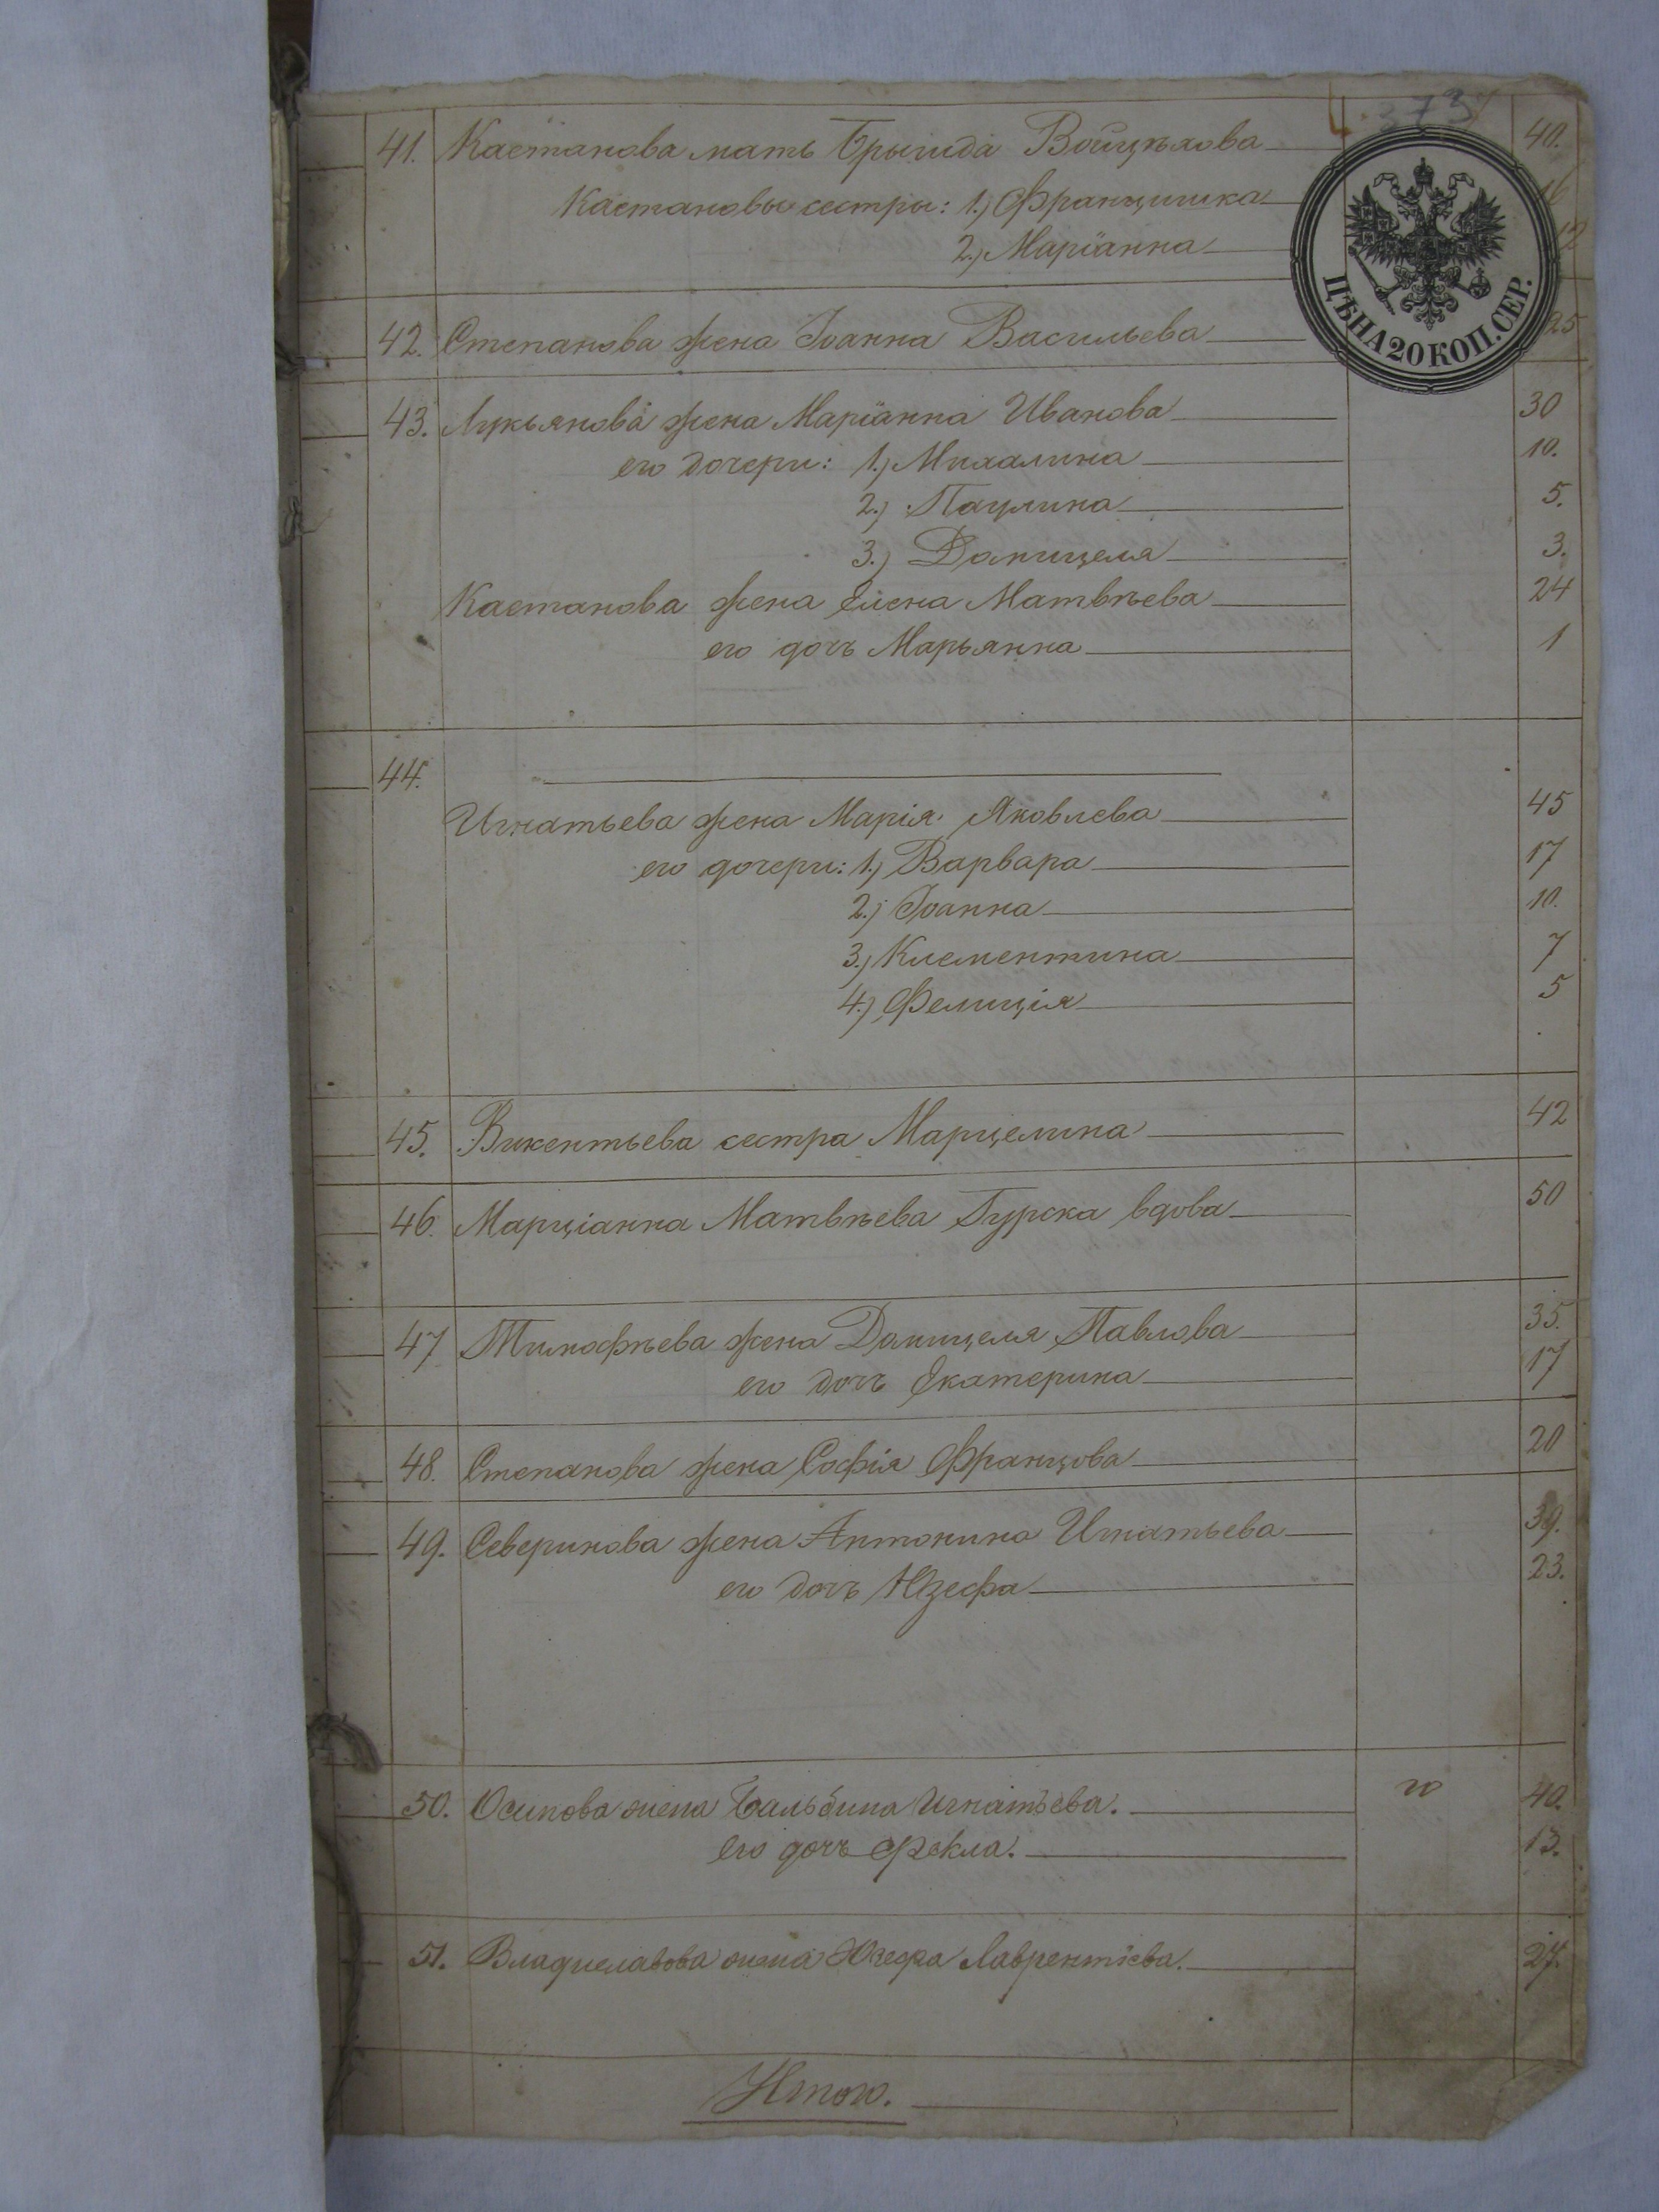 373
41. Каетанова мать Брыгида Войцѣхова 40.
Каетановы сестры: 1.) Францишка 16
2.) Маріанна 12
ЦѢНА 20 КОП. СЕР.
42. Степанова жена Іоанна Васильева 25
43. Лукьянова жена Маріанна Иванова 30
его дочери: 1.) Михалина 10.
2.) Паулина 5.
3.) Домицеля 3.
Каетанова жена Елена Матвѣева 24
его дочь Марьянна 1
44.
Игнатьева жена Марія Яковлева 45
его дочери: 1.) Варвара 17
2.) Іоанна 10.
3.) Клементина 7
4.) Фелиція 5
45. Викентьева сестра Марцелина 42
46. Марціанна Матвѣева Гурска вдова 50
47 Тимофѣева жена Домицеля Павлова 35.
его дочь Екатерина 17
48. Степанова жена Софія Францова 20
49. Северинова жена Антонина Игнатьева 39.
его дочь Юзефа 23.
50. Осипова жена Бальбина Игнатьева. 40.
его дочь Фекла. 13.
51. Владиславова жена Юзефа Лаврентьева. 27.
Итого.